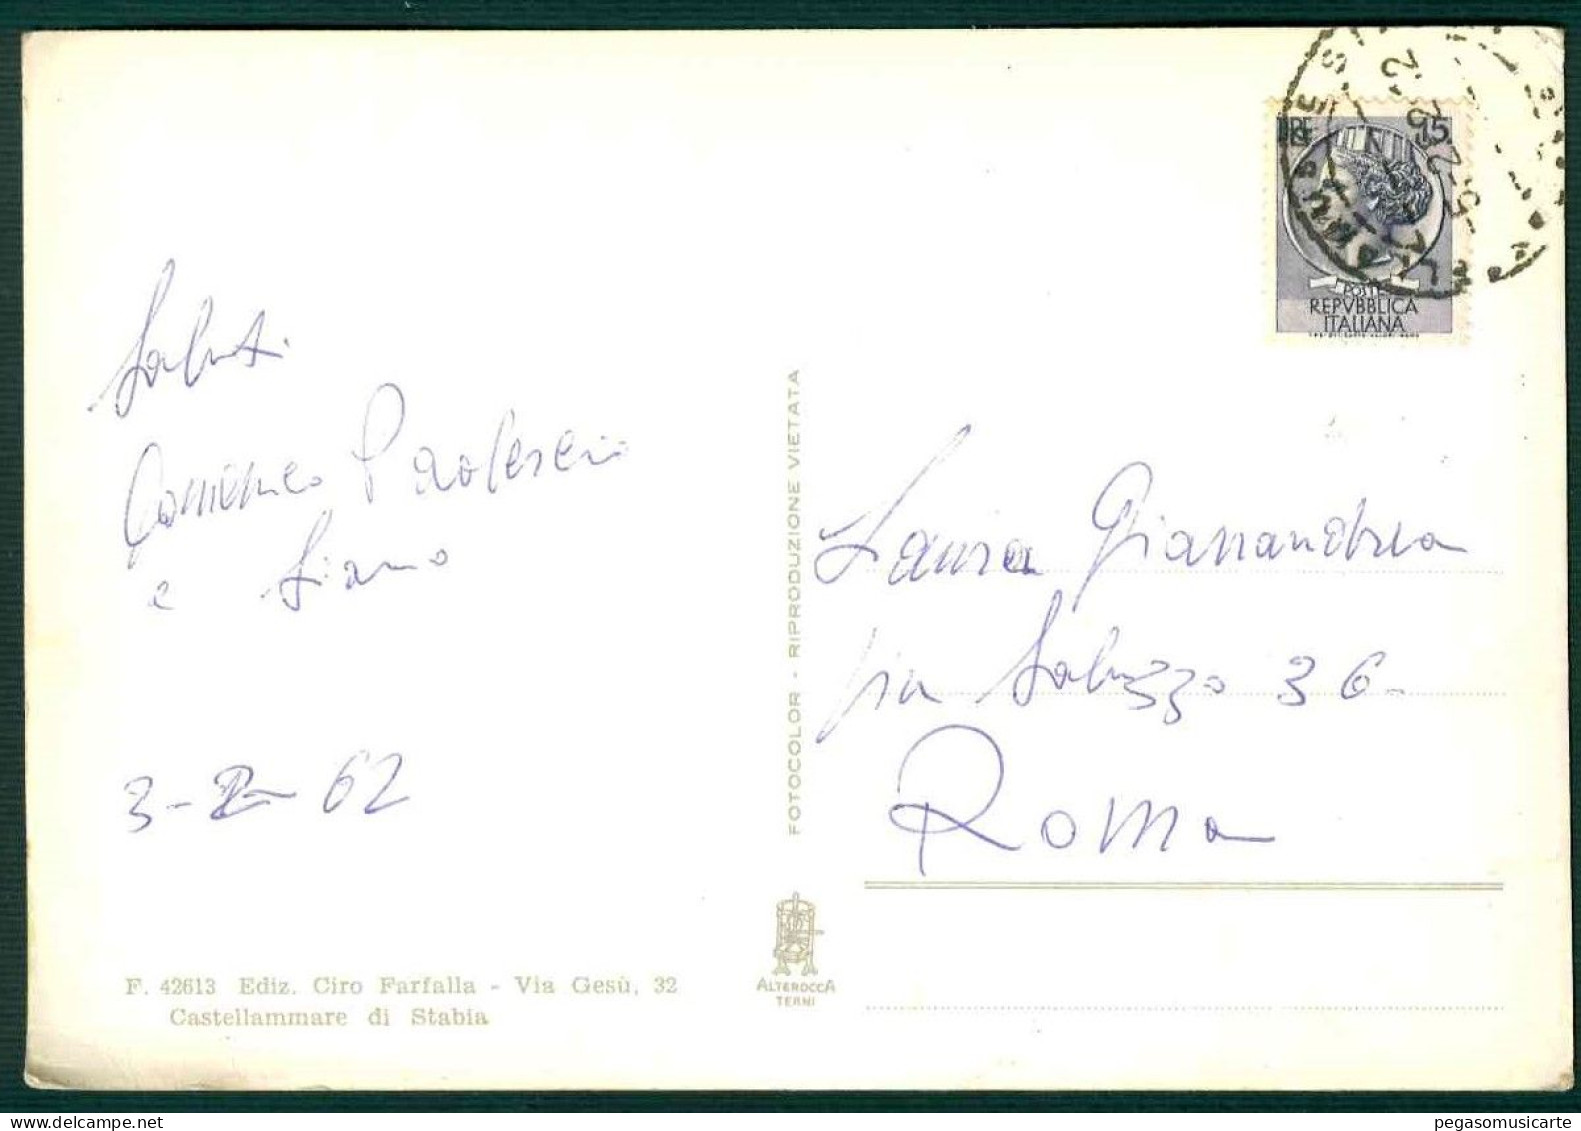 Saluti
Domenico
e
3-2-62
F. 42613 Ediz. Ciro Farfalla - Via Gesù, 32
Castellammare di Stabia
FOTOCOLOR - RIPRODUZIONE VIETATA
ALTEROCCA
TERNI
LIRE 15
POSTE
REPVBBLICA
ITALIANA
Laura Giannandrea
Via Saluzzo 36
Roma
pegasomusicarte